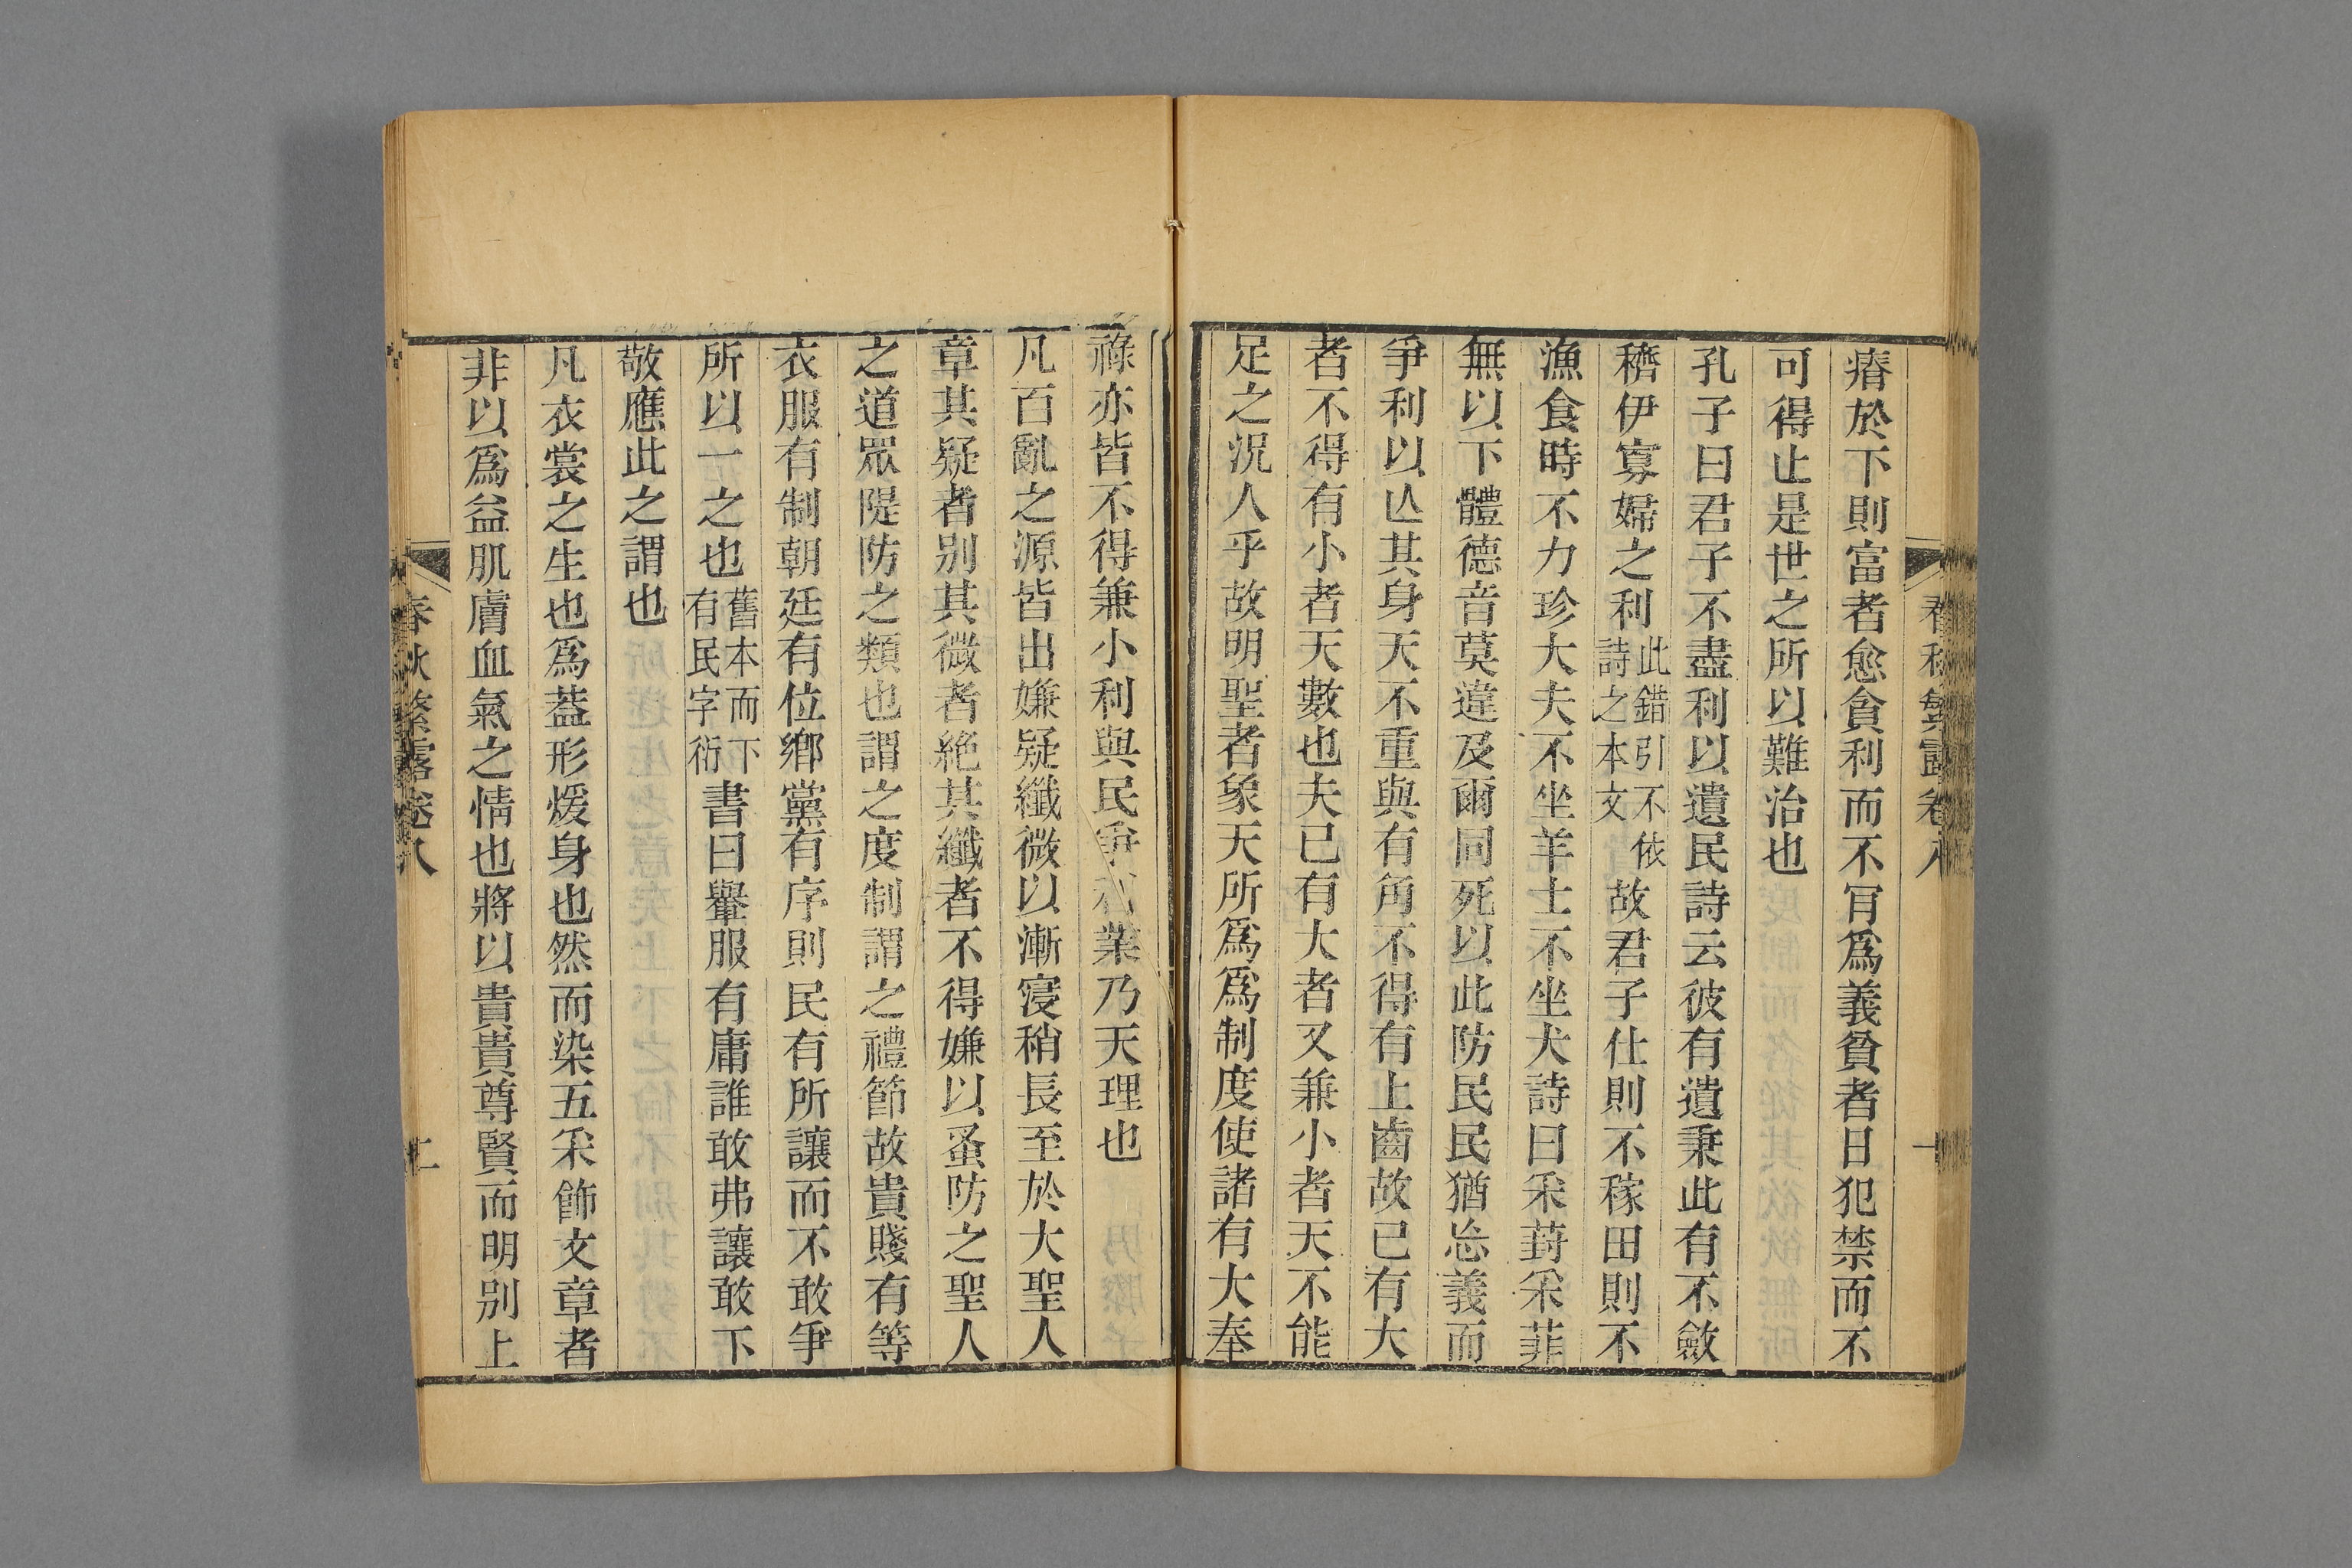 瘠於下則富者愈貪利而不肎爲義貧者日犯禁而不
可得止是世之所以難治也
孔子曰君子不盡利以遺民詩云彼有遺秉此有不斂
穧伊寡婦之利此錯引不依詩之本文故君子仕則不稼田則不
漁食時不力珍大夫不坐羊士不坐犬詩曰采葑采菲
無以下體德音莫違及爾同死以此防民民猶忘義而
爭利以亾其身天不重與有角不得有上齒故已有大
者不得有小者天數也夫已有大者又兼小者天不能
足之況人乎故明聖者象天所爲爲制度使諸有大奉
祿亦皆不得兼小利與民爭利業乃天理也
凡百亂之源皆出嫌疑纖微以漸寖稍長至於大聖人
章其疑者别其微者絶其纖者不得嫌以蚤防之聖人
之道眾隄防之類也謂之度制謂之禮節故貴賤有等
衣服有制朝廷有位鄕黨有序則民有所讓而不敢爭
所以一之也舊本而下有民字衍書曰轝服有庸誰敢弗讓敢下
敬應此之謂也
凡衣裳之生也爲葢形煖身也然而染五采飾文章者
非以爲益肌膚血氣之情也將以貴貴尊賢而明别上
春秋繁露卷八
二